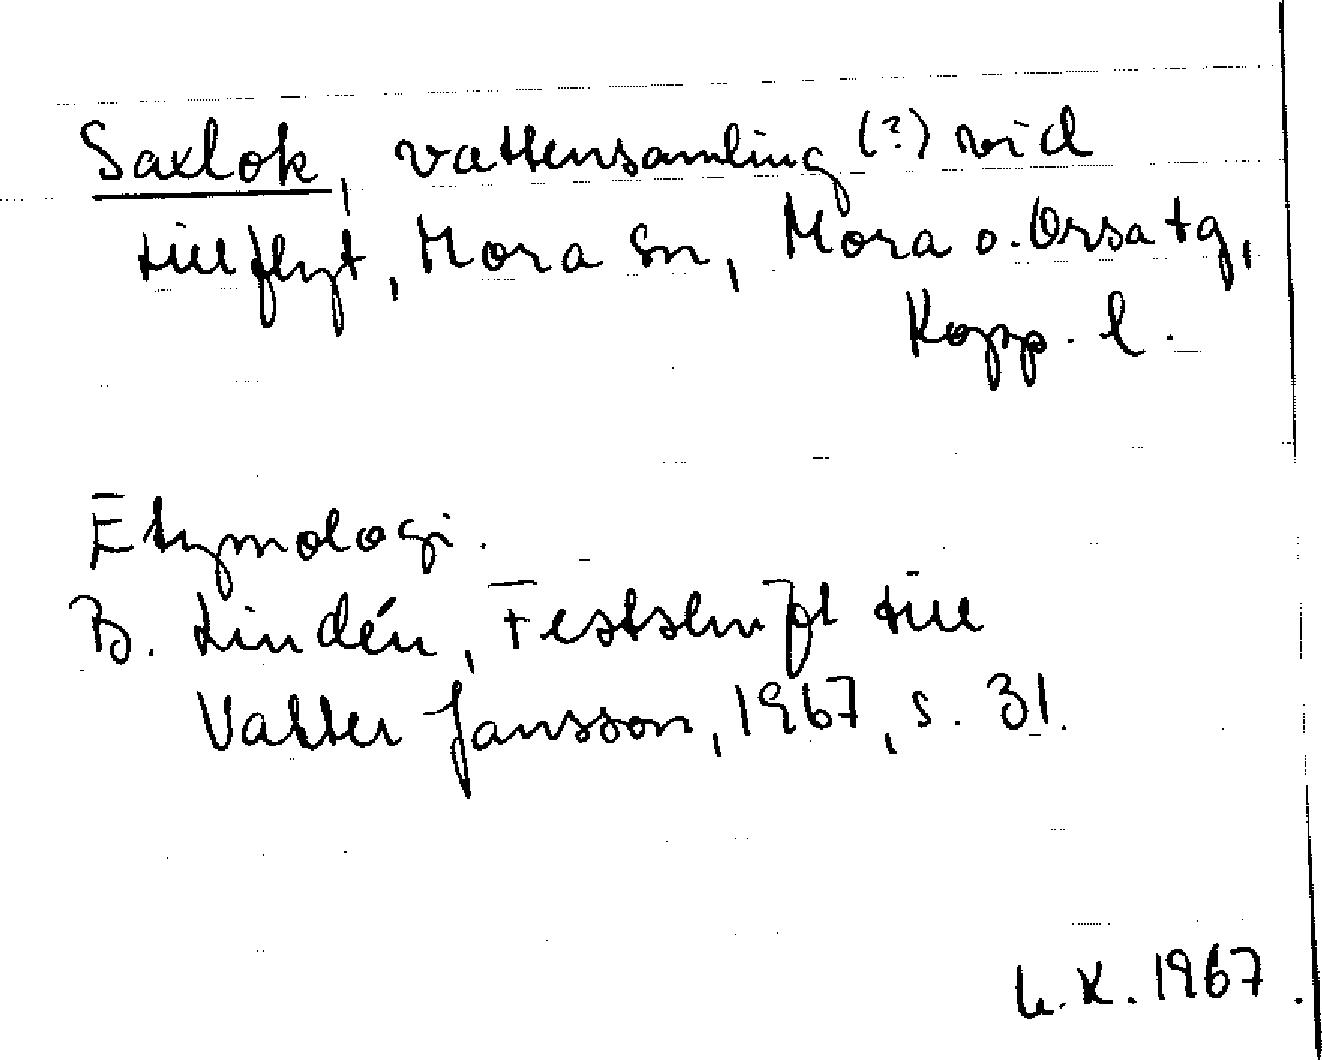 Saxlok, vattensamling (?) vid
tillflyt, Mora sn, Mora o. Orsa tg,
Kopp. l.
Etymologi.
B. Lindén, Festskrift till
Valter Jansson, 1967, s. 31.
K. 1967.